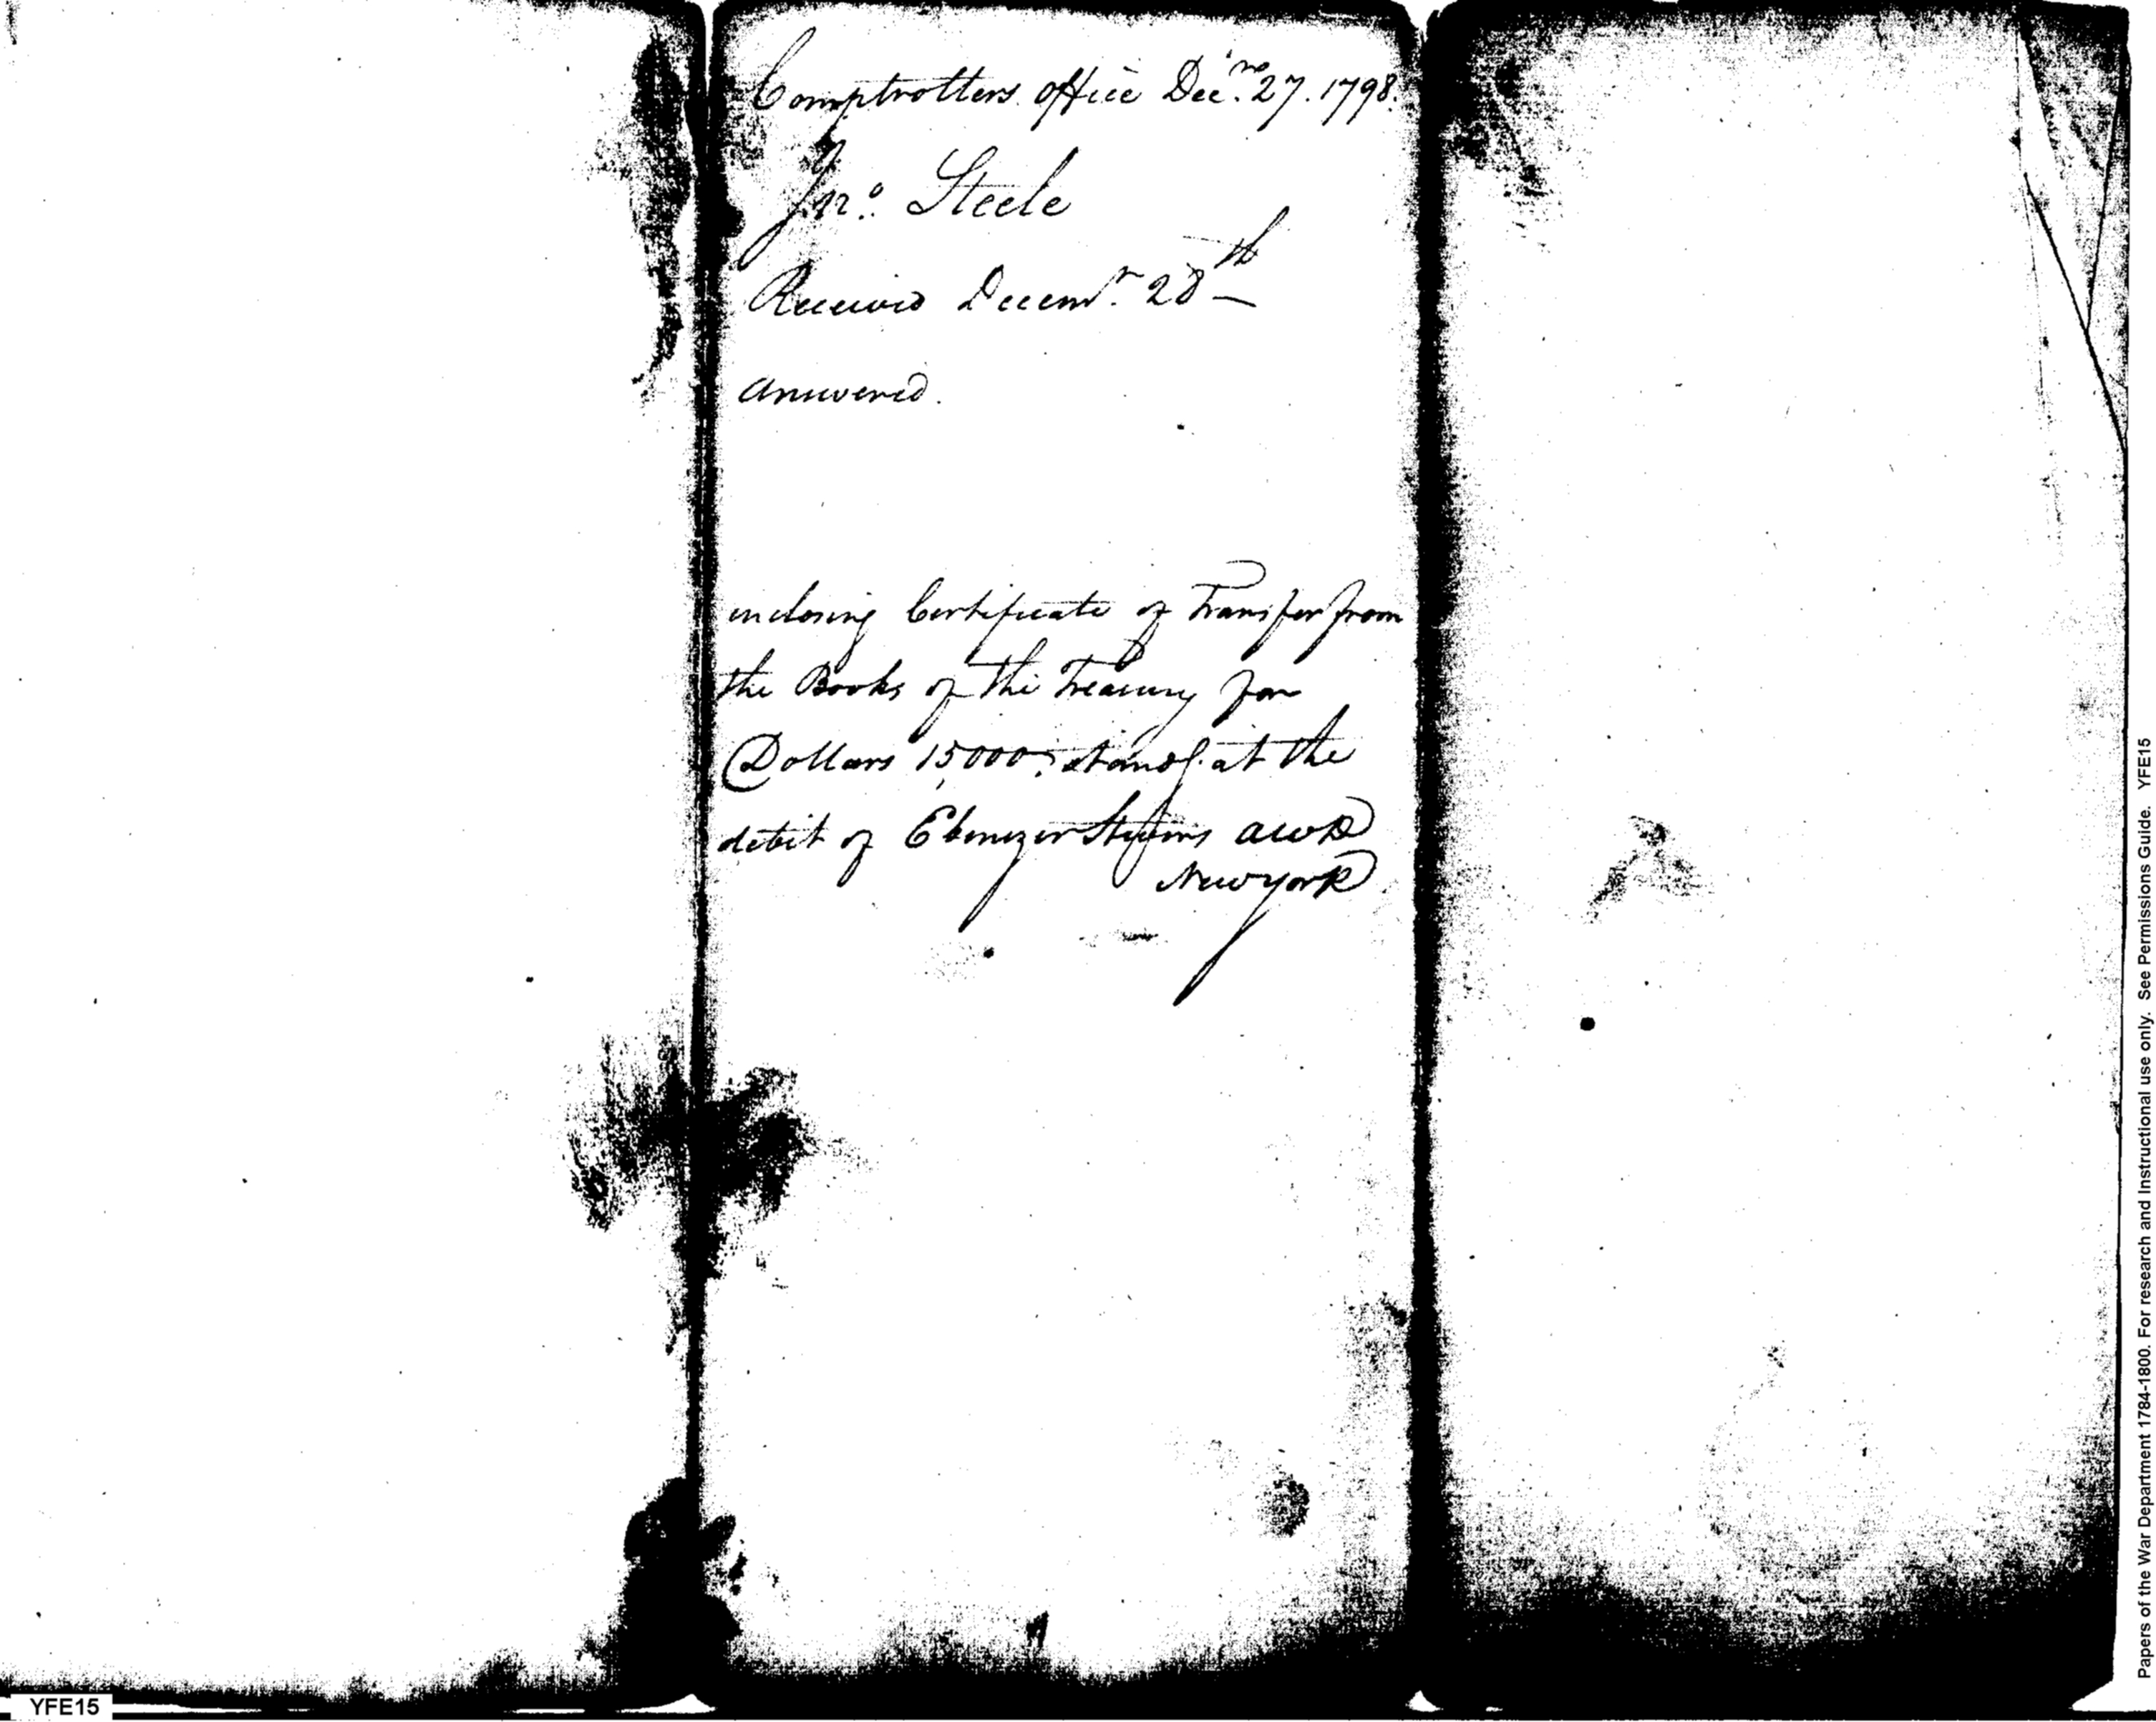 Comptrollers office Decr. 27. 1798.
Jno. Steele
Received Decemr. 28th
Answered.
inclosing Certificate of Transfer from
the Books of the Treasury for
Dollars 15,000 standg. at the
debit of Ebenezer Stevens
New york
YFE15
Papers of the War Department 1784-1800. For research and Instructional use only. See Permissions Guide. YFE15